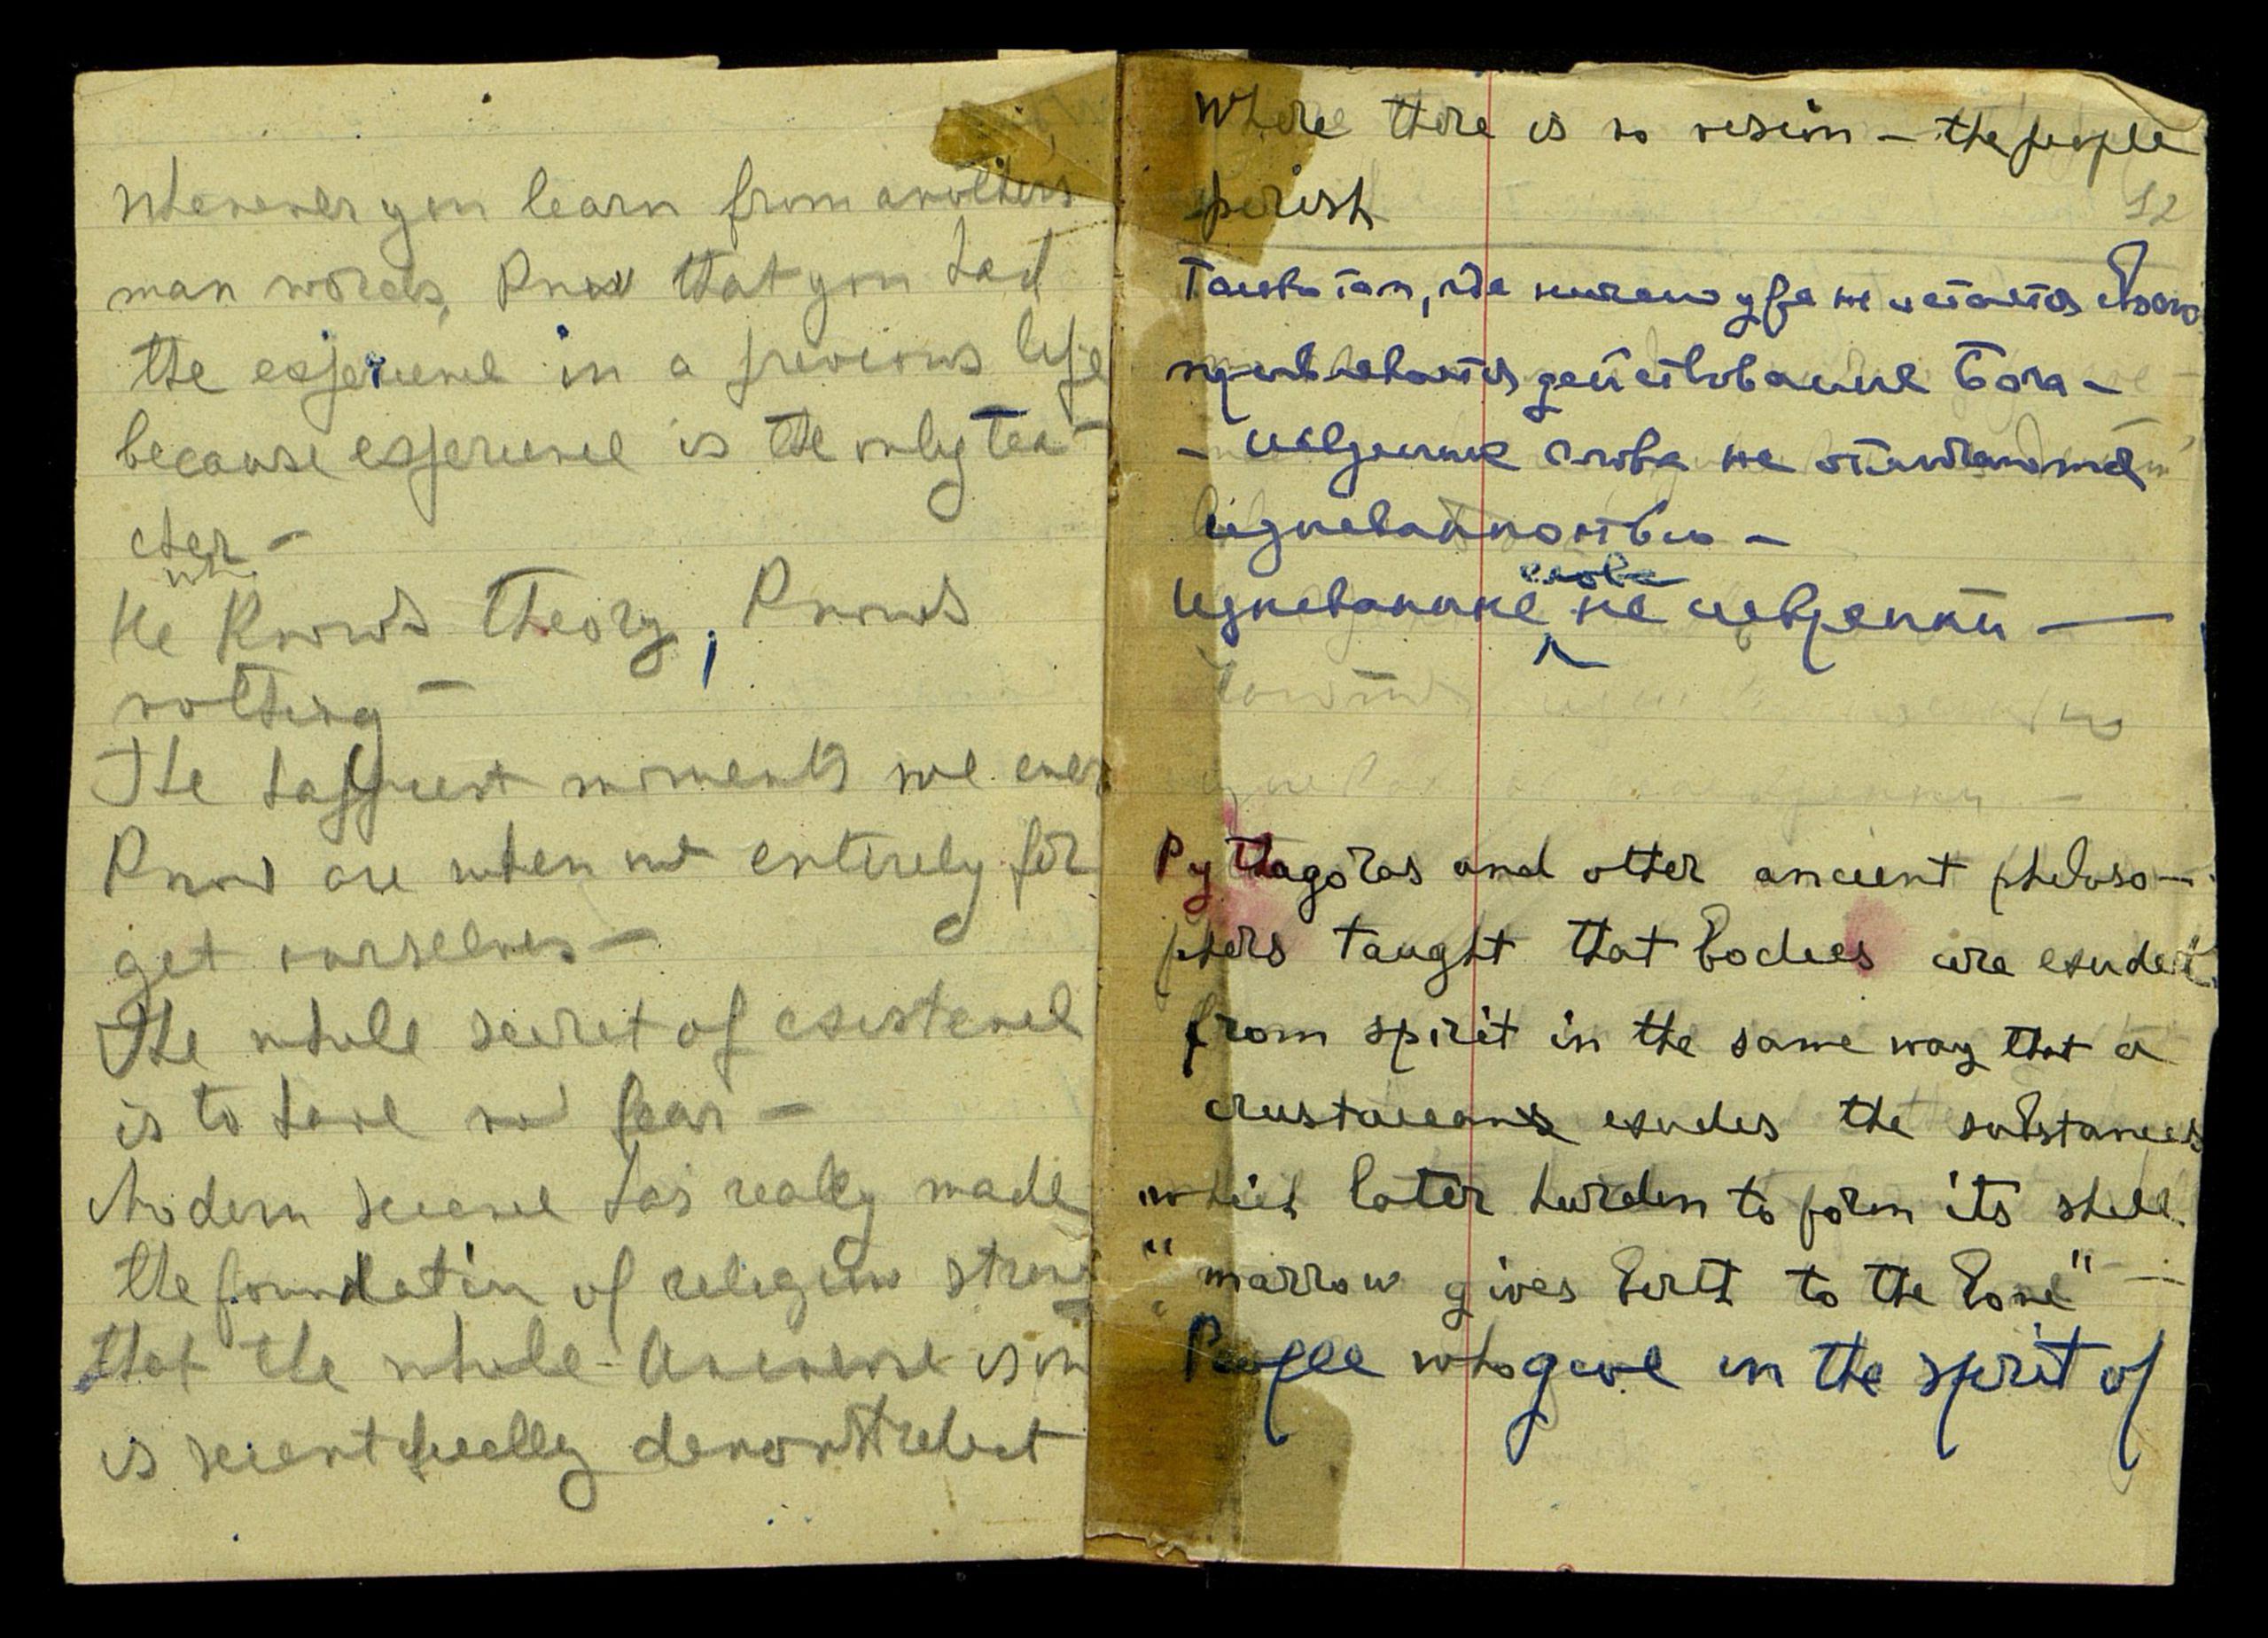 Whenever you learn from anothers
man words, know that you had
the experience in a previous life
because experience is the only tea-
cher –
who
He knows theory, knows
nothing –
The happiest moments we ever
know are when we entirely for
get ourselves –
The whole secret of existence
is to have no fear –
Modern science has really made
the foundation of religion strong
that the whole universe is on
is scientifically demonstrebut
Where there is no vision – the people
perish
12
Только там, где ничего уже не остается
действование Бога –
– искренние слова не отличаются
изысканностью –
слова
изысканные не искренни —
Pythagoras and other ancient philoso–
phers taught that bodies are exuded
from spirit in the same way that a
crustaceans exudes the substances
which later hurden to form its shell.
"marrow gives birth to the bone" –
People who give in the spirit of